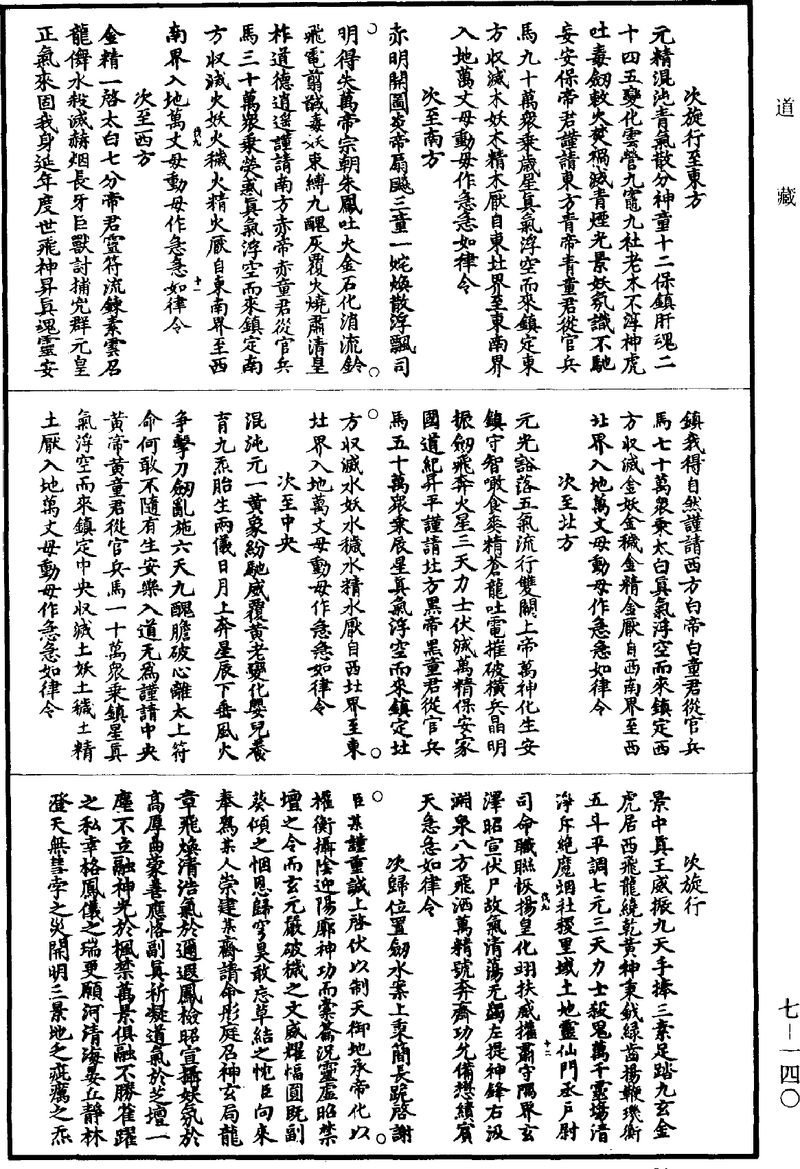 道藏
次旋行至東方
元精混沌青氣散分神童十二保鎮肝魂二
十四五變化雲營九竈九社老木不浮神虎
吐毒劒敕火焚禍滅青煙光景妖氛識不馳
妄安保帝君謹請東方青帝青童君從官兵
馬九十萬衆乗歲星真氣浮空而來鎮定東
方収滅木妖木精木厭自東北界至東南界
入地萬丈毋動毋作急急如律令
次至南方
赤明開圖炎帝扇飈三童一姹煥散浮飄司
明得失萬帝宗朝朱鳳吐火金石化消流鈴
飛電翦誠毒妖束縛九醜灰覆火燒肅清皇
祚道德逍遥謹請南方赤帝赤童君從官兵
馬三十萬衆乗熒惑真氣浮空而來鎮定南
方収滅火妖火穢火精火厭自東南界至西
南界入地萬丈毋動毋作急急如律令
十一
次至西方
金精一啓太白七分帝君靈符流鍊素雲召
龍儛水殺滅赫烟長牙巨獸討捕兇群元皇
正氣來固我身延年度世飛神昇真魂靈安
鎮我得自然謹請西方白帝白童君從官兵
馬七十萬衆乗太白真氣浮空而來鎮定西
方収滅金妖金穢金精金厭自西南界至西
北界入地萬丈毋動毋作急急如律令
次至北方
元光谽落五氣流行雙關上帝萬神化生安
鎮守智噉食炎精蒼龍吐電摧破橫兵晶明
振劒飛奔火星三天力士伏滅萬精保安家
國道紀昇平謹請北方黑帝黑童君從官兵
馬五十萬衆乗辰星真氣浮空而來鎮定北
方収滅水妖水穢水精水厭自西北界至東
北界入地萬丈毋動毋作急急如律令
次至中央
混沌元一黄象紛馳威覆黄老變化嬰兒養
育九炁胎生兩儀日月上奔星辰下垂風火
争擊刀劒亂施六天九醜膽破心離太上符
命何敢不隨有生安樂入道无爲謹請中央
黄帝黄童君從官兵馬一十萬衆乗鎮星真
氣浮空而來鎮定中央収滅土妖土穢土精
土厭入地萬丈毋動毋作急急如律令
次旋行
景中真王威振九天手捧三素足踏九玄金
虎居西飛龍繞乾黄神秉鉞緑齒揚鞭璣衡
五斗平調七元三天力士殺鬼萬千靈塲清
淨斥絶魔烟社稷里域土地靈仙門丞戸尉
司命職聯恢揚皇化翊扶威權肅守隅界玄
十二
澤昭宣伏尸故氣清蕩无躅左提神鋒右汲
淵泉八方飛洒萬精號奔齊功先備懋績賓
天急急如律令
次歸位置劒水案上秉簡長跪啓謝
臣某謹重誠上啓伏以制天御地承帝化以
權衡攝陰迎陽廓神功而橐籥況靈虚昭禁
壇之令而玄元嚴破穢之文威耀幅圓既副
葵傾之悃恩歸穹昊敢忘草結之忱臣向來
奉爲某人崇建某齋請命彤庭召神玄局龍
章飛煥清浩氣於邇遐鳳檢昭宣攝妖氛於
高厚曲蒙善應恪副真祈凝道氣於芝壇一
塵不立融神光於楓禁萬景俱融不勝雀躍
之私幸格鳳儀之瑞更願河清海晏丘靜林
澄天無彗孛之災開明三景地乏疵癘之炁
七－一四〇